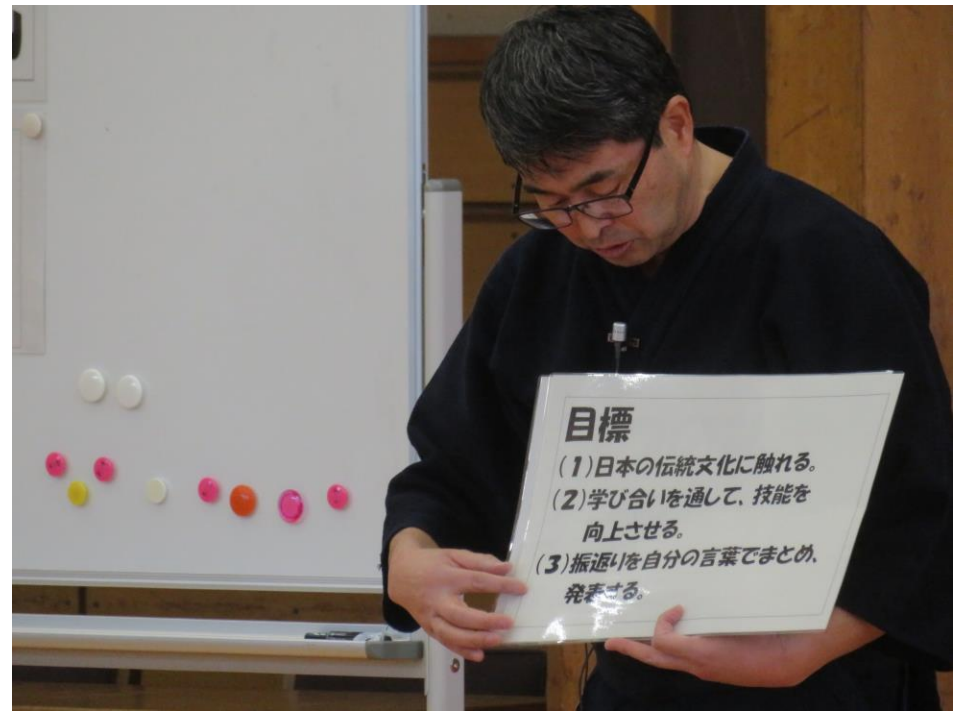 目標
(1)日本の伝統文化に触れる。
(2)学び合いを通して、技能を
向上させる。
(3)振返りを自分の言葉でまとめ、
発表する。